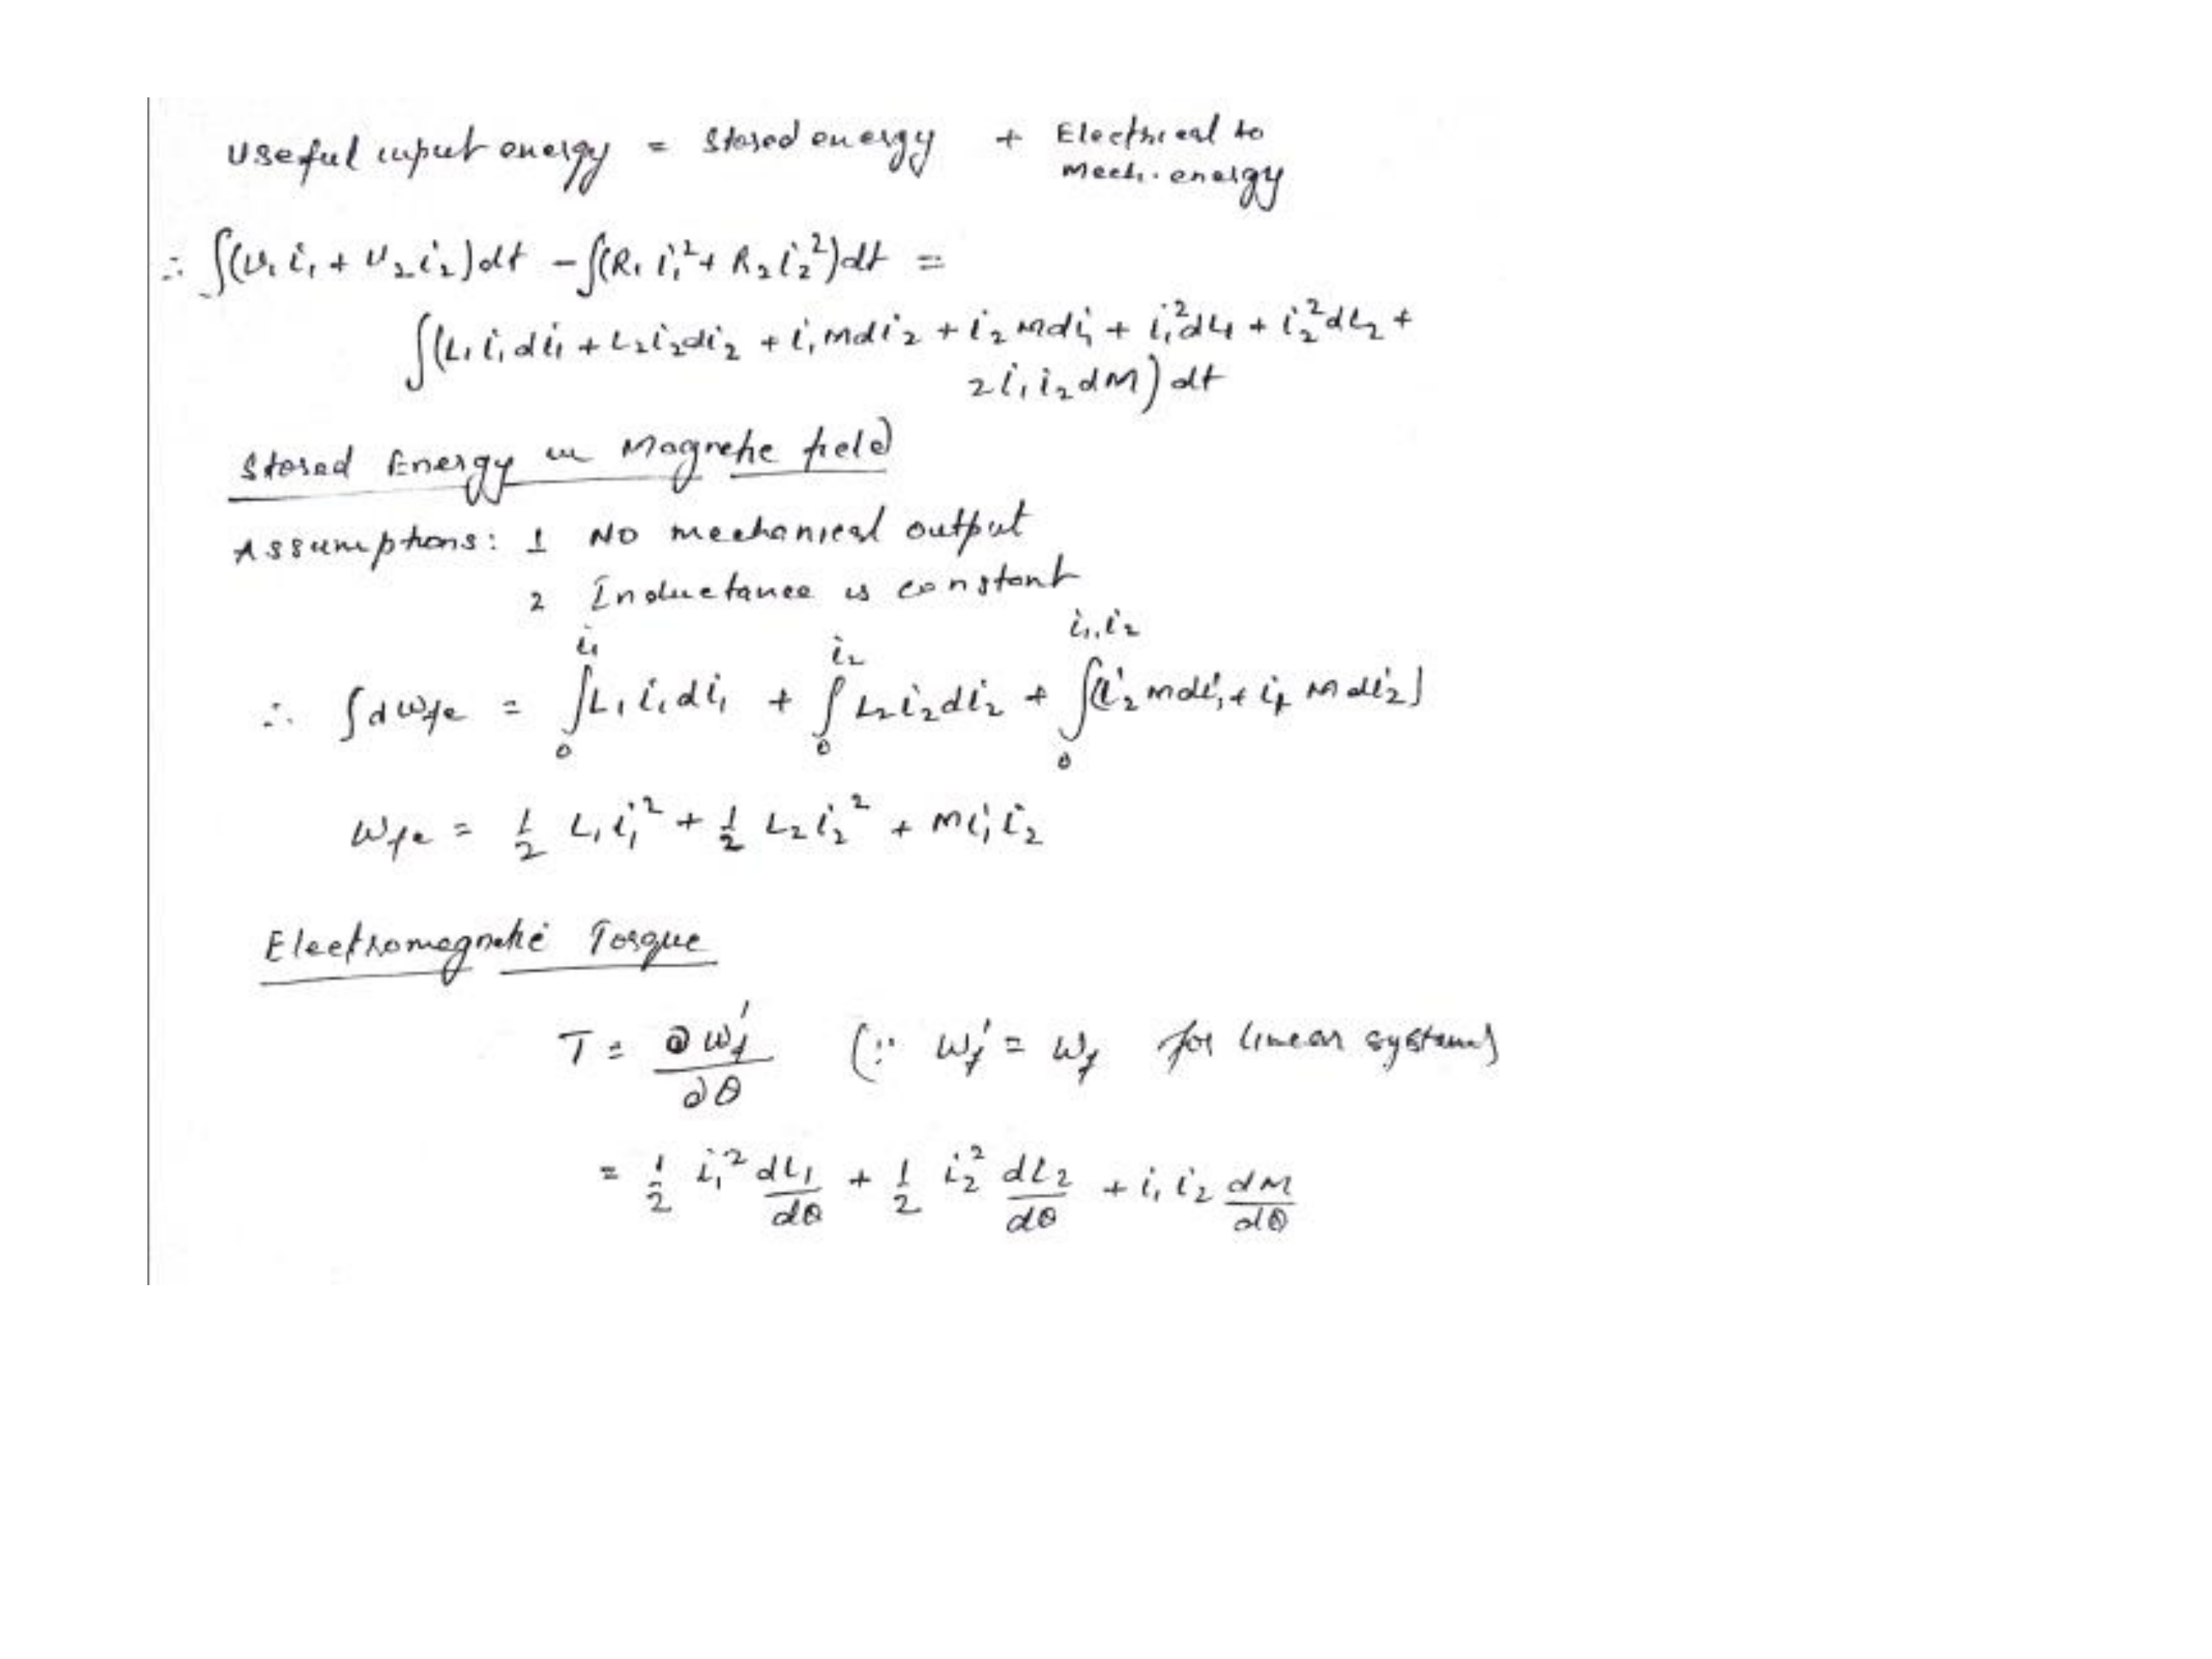 Useful input energy = Stored energy + Electrical to
Mech. energy
∴ ∫(v₁i₁ + v₂i₂)dt - ∫(R₁i₁² + R₂i₂²)dt =
∫(L₁i₁di₁ + L₂i₂di₂ + i₁Mdi₂ + i₂Mdi₁ + i₁²dL₁ + i₂²dL₂ +
2i₁i₂dM)dt
Stored Energy in Magnetic field
Assumptions: 1 No mechanical output
2 Inductance is constant
∴ ∫dWfe = ∫₀^i₁ L₁i₁di₁ + ∫₀^i₂ L₂i₂di₂ + ∫₀^i₁,i₂ (i₂Mdi₁ + i₁Mdi₂)
Wfe = 1/2 L₁i₁² + 1/2 L₂i₂² + Mi₁i₂
Electromagnetic Torque
T = ∂Wf'/∂θ (∵ Wf' = Wf for linear systems)
= 1/2 i₁² dL₁/dθ + 1/2 i₂² dL₂/dθ + i₁i₂ dM/dθ